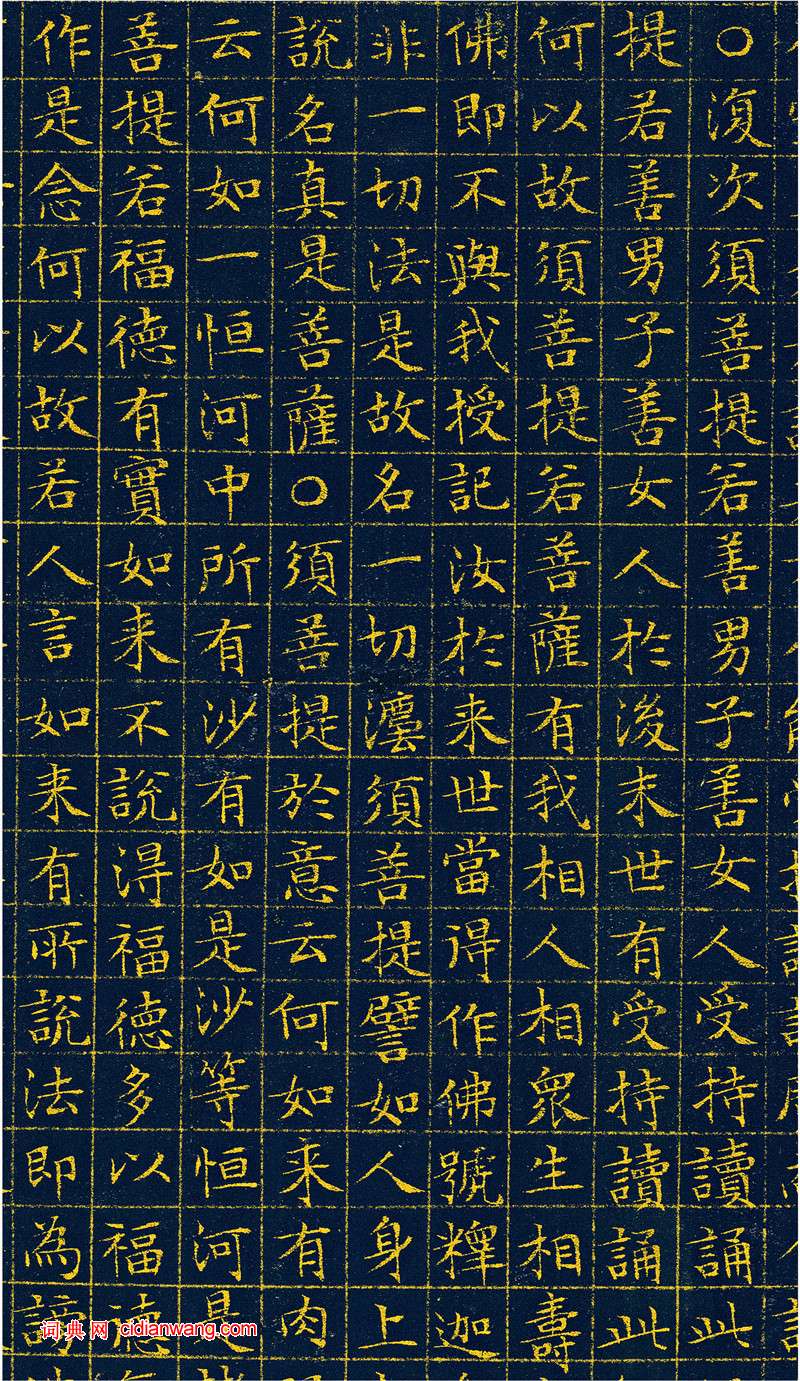 ○復次須善提若善男子善女人受持讀誦此
提若善男子善女人於後末世有受持讀誦此
何以故須善提若善薩有我相人相衆生相壽
佛即不與我授記汝於来世當得作佛號釋迦
非一切法是故名一切灋須善提譬如人身上
說名真是善薩○須善提於意云何如来有肉
云何如一恒河中所有沙有如是沙等恒河是
善提若福德有實如来不說得福德多以福德
作是念何以故若人言如来有所說法即為謗
词典网 cidianwang.com